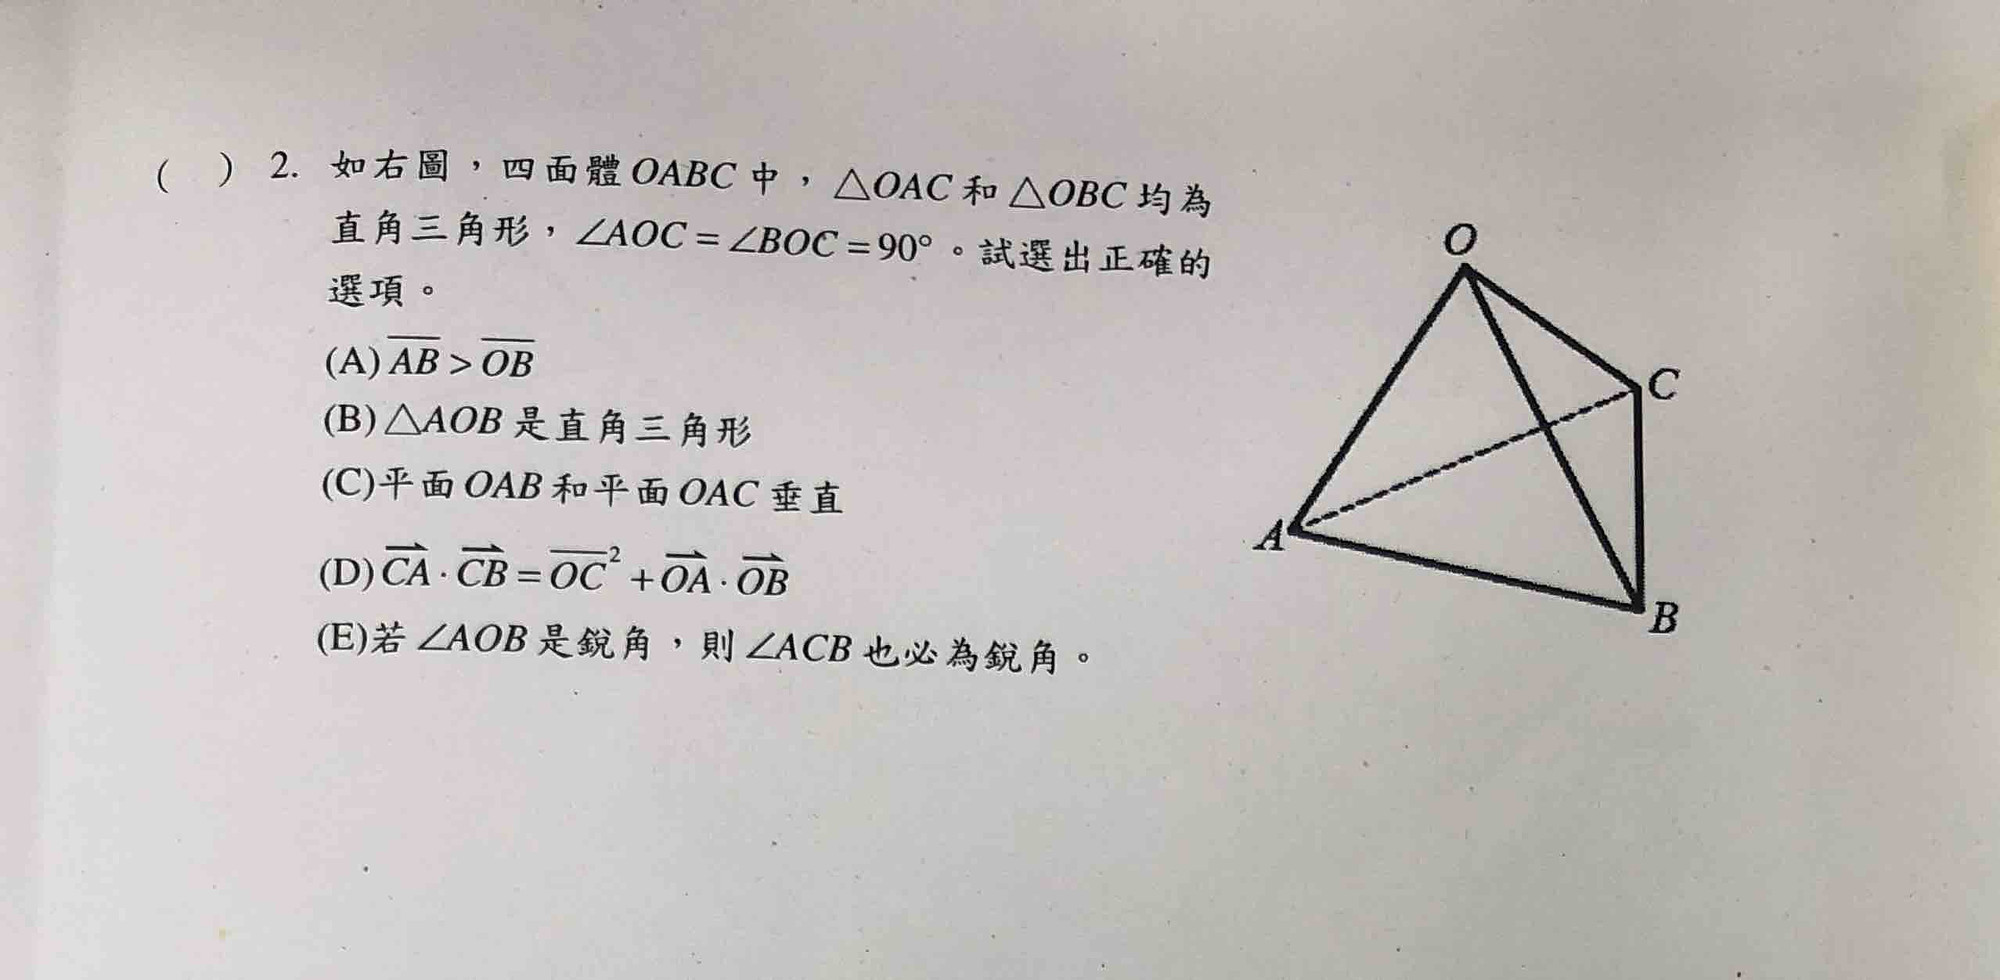 (  ) 2. 如右圖，四面體 OABC 中，△OAC 和 △OBC 均為
直角三角形，∠AOC = ∠BOC = 90°。試選出正確的
選項。
(A) $\overline{AB} > \overline{OB}$
(B) △AOB 是直角三角形
(C)平面 OAB 和平面 OAC 垂直
(D) $\overrightarrow{CA} \cdot \overrightarrow{CB} = \overline{OC}^2 + \overrightarrow{OA} \cdot \overrightarrow{OB}$
(E)若 ∠AOB 是銳角，則 ∠ACB 也必為銳角。
O
C
A
B